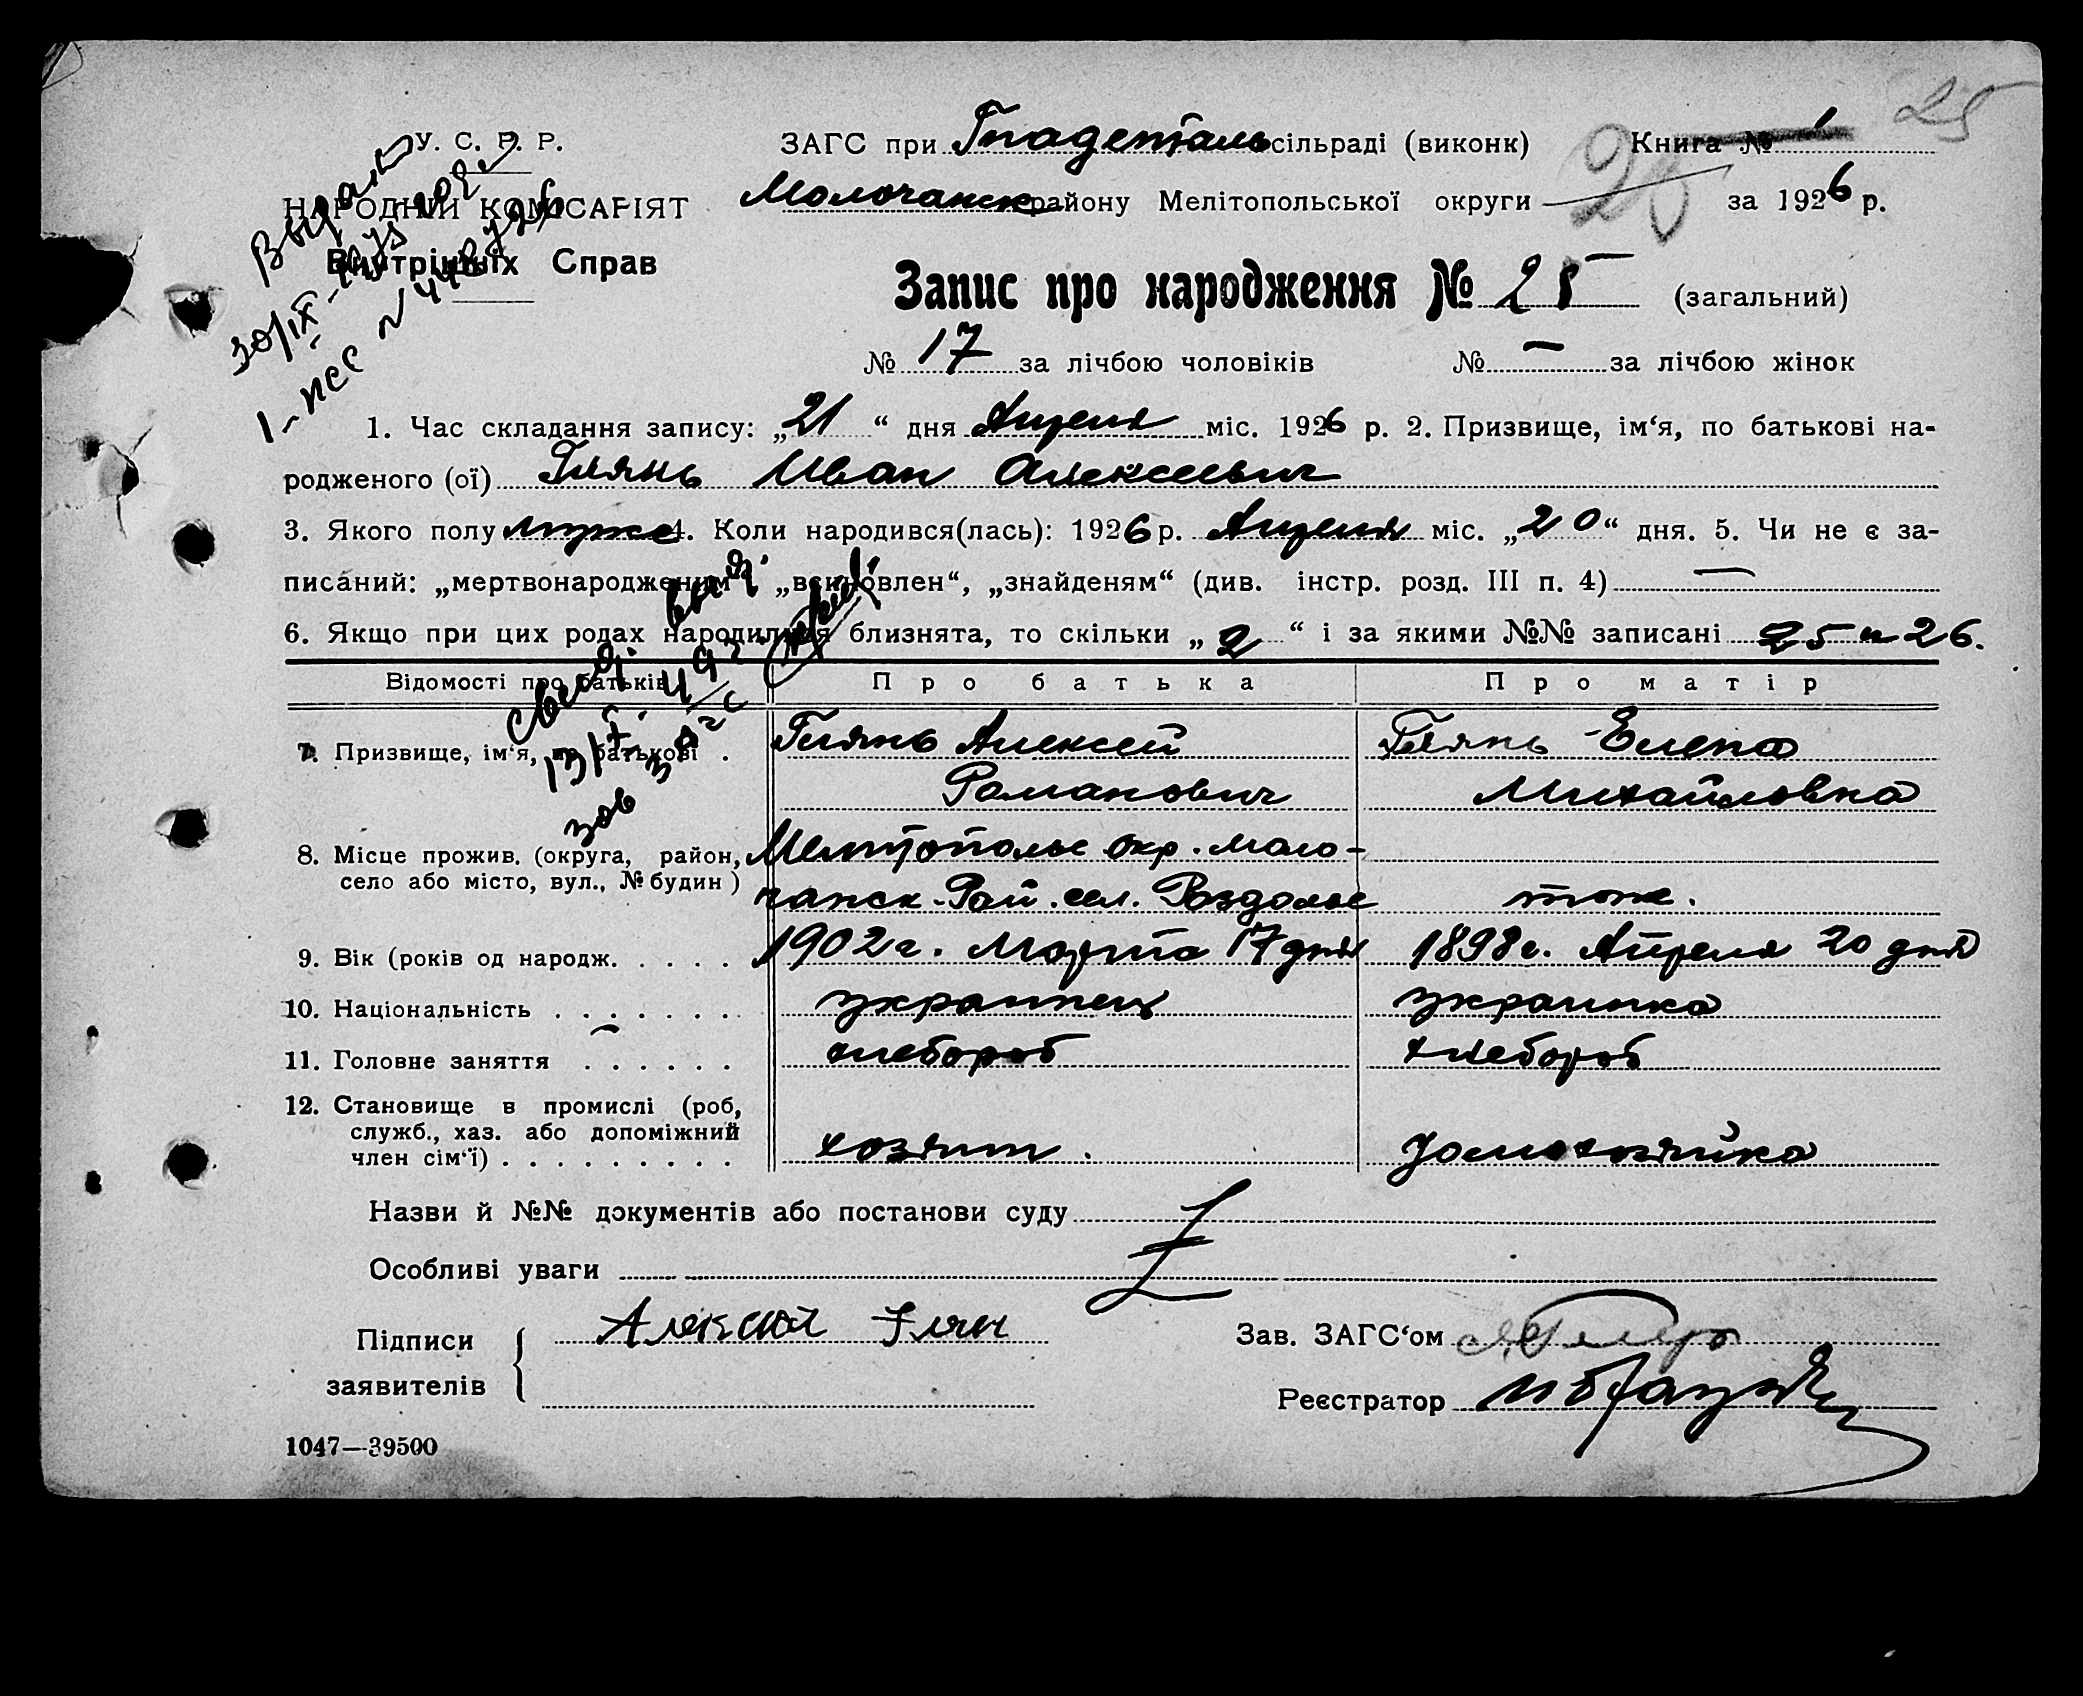 25
У. С. Р. Р.
НАРОДНІЙ КОМІСАРІЯТ
Внутрішніх Справ
ЗАГС при Гнаденталь сільраді (виконк) Книга № 1
Молочанск району Мелітопольської округи 25 за 1926 р.
Запис про народження № 25 (загальний)
№ 17 за лічбою чоловіків № — за лічбою жінок
1. Час складання запису: „21“ дня Апреля міс. 1926 р. 2. Призвище, ім‘я, по батькові на-
родженого (ої) Глянь Иван Алексеевич
3. Якого полу мужс 4. Коли народився(лась): 1926 р. Апреля міс. „20“ дня. 5. Чи не є за-
писаний: „мертвонародженим“, „всиновлен“, „знайденям“ (див. інстр. розд. III п. 4) —
6. Якщо при цих родах народилися близнята, то скільки „2“ і за якими №№ записані 25 и 26.
Відомості про батьків Про батька Про матір
7. Призвище, ім‘я, по батькові . Глянь Алексей Глянь Елена
Романович Михайловна
8. Місце прожив. (округа, район, Мелитопольс окр. Моло-
село або місто, вул., № будин) чанск. Рай. сел. Роздолье тоже.
9. Вік (років од народж. . . . . 1902 г. Марта 17 дня 1898 г. Апреля 20 дня
10. Національність . . . . . . . . украинец украинка
11. Головне заняття . . . . . . хлебороб хлебороб
12. Становище в промислі (роб,
служб., хаз. або допоміжний
член сім‘ї) . . . . . . . . . хозяин. домохозяйка
Назви й №№ документів або постанови суду
Особливі уваги
Підписи Алексей Глян Зав. ЗАГС‘ом
заявителів Реєстратор
1047—39500